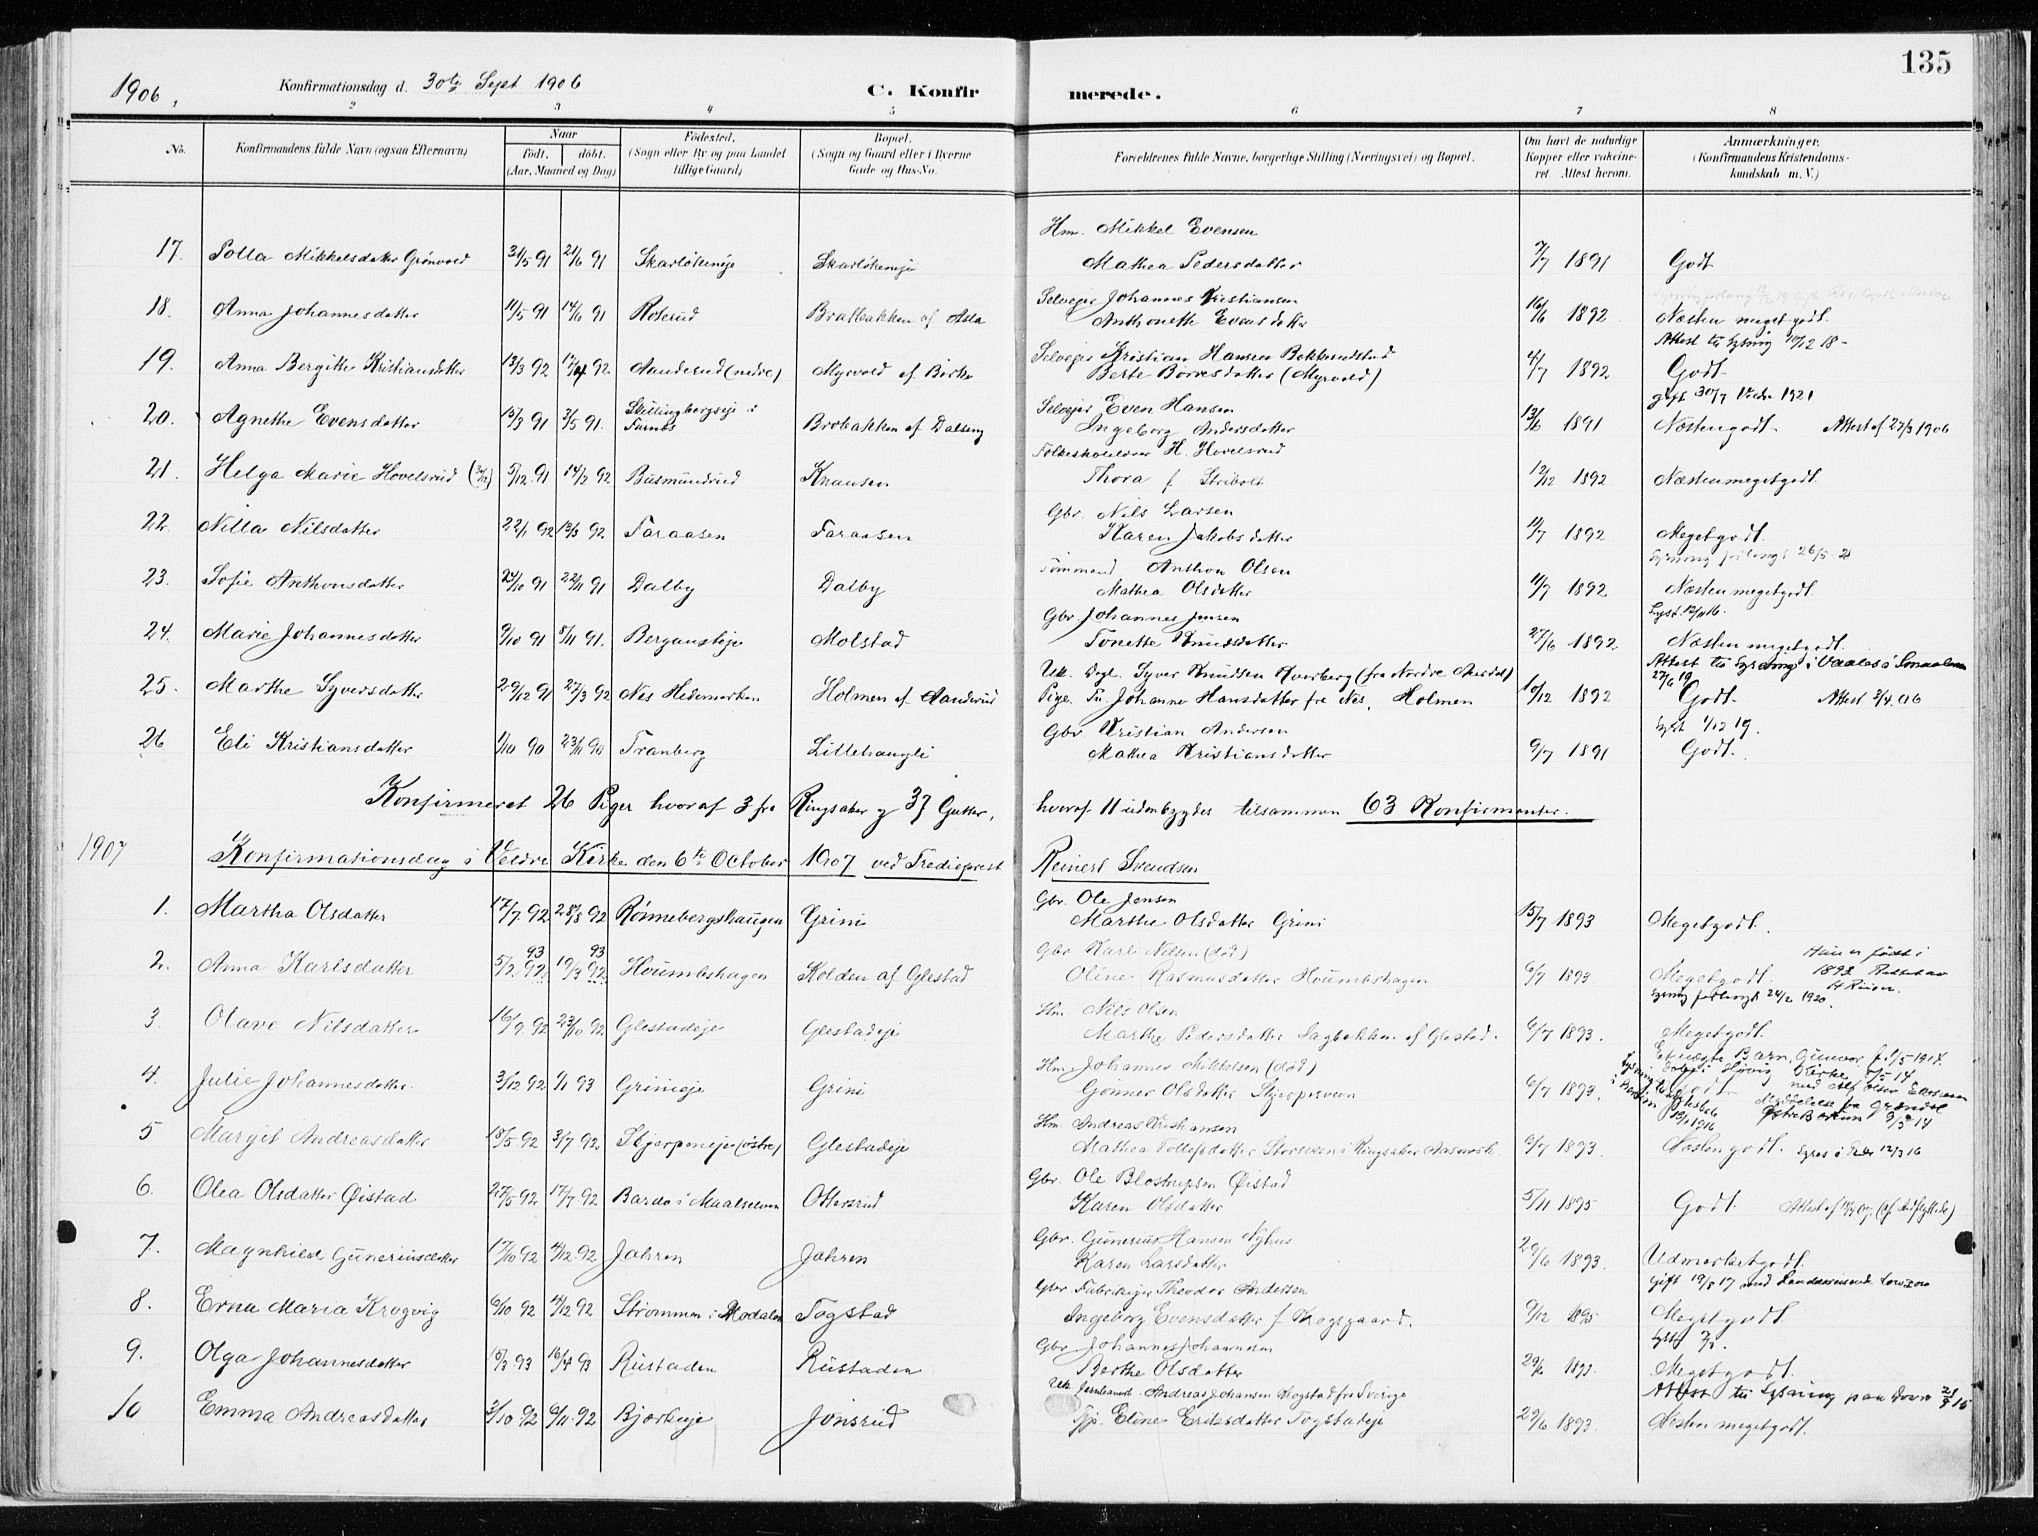 135
1906, Konfirmationsdag d. 30te Sept 1906 C. Konfirmerede.
2 3 4 5 6 7 8
No. Konfirmandens fulde Navn (ogsaa Efternavn) Naar født. døbt. (Aar, Maaned og Dag) Fødested. (Sogn eller By og paa Landet tillige Gaard) Bopæl. (Sogn og Gaard eller i Byerne Gade og Hus-No. Forældrenes fulde Navne, borgerlige Stilling (Næringsvei) og Bopæl. Om havt de naturlige Kopper eller vakcineret. Attest herom. Anmærkninger. (Konfirmandens Kristendomskundskab m. V.)
Hm. Mikkel Evensen
17. Polla Mikkelsdatter Grönvold 31/5 91 21/6 91 Skarlökeneje Skarlökeneje Mathea Pedersdatter 7/7 1891 Godt
Selvejer Johannes Kristiansen
18. Anna Johannesdatter 11/5 91 14/6 91 Roterud Bratbakken af Asla Anthonette Evensdatter 16/6 1892 Næsten meget godt.
Attest til Lysning 10/12 18-
19. Anna Bergitte Kristiansdatter 13/3 92 17/4 92 Aanderud (nedre) Myrvold af Birke Selvejer Kristian Hansen Bekkerudstad
Berte Borresdatter (Myrvold) 4/7 1892 Godt
gift 30/7 1921
20. Agnethe Evensdatter 15/3 91 3/5 91. Skillingbergseje i Furnes Brobakken af Dalseng Selvejer Even Hansen
Ingeborg Andersdatter 13/6 1891 Næsten godt. Attest af 27/3 1906
Folkeskolelærer H. Hovelsrud
21. Helga Marie Hovelsrud 5/12 91 14/2 92 Busmundrud Knausen Thora f. Stribolt 12/12 1892 Næsten meget godt.
Gbr. Nils Larsen
22. Nilla Nilsdatter 22/1 92 13/3 92 Faraasen Faraasen Karen Jakobsdatter 11/7 1892 Meget godt.
Lysning forlangt 26/5 21
Tømmermd Anthon Olsen
23. Sofie Anthonsdatter 24/10 91 22/11 91 Dalby Dalby Mathea Olsdatter 11/7 1892 Næsten meget godt.
Lyst. 12/11 16.
Gbr Johannes Jensen
24. Marie Johannesdatter 9/10 91 8/11 91. Berganseje Molstad Tonette Knudsdatter 27/6 1892 Næsten meget godt.
Attest til Lysning i Vaaler i Smaalene 27/6 19
Uk. Dagl. Syver Knudsen Kverberg (fra Nordre Aurdal)
25. Marthe Syversdatter 29/12 91 27/3 92 Nes Hedemarken Holmen af Aanderud Pige. Tn. Johanne Hansdatter fra Nes, Holmen 10/12 1892 Godt. Attest 2/4.06
Lyst 1/12 19.
Gbr Kristian Andersen
26 Eli Kristiansdatter 1/10 90 23/11 90 Tranberg Lillehaugli Mathea Kristiansdatter 9/7 1891 Godt.
Konfirmeret 26 Piger hvoraf 3 fra Ringsaker og 37 Gutter, hvoraf 11 udenbygdes tilsammen 63 Konfirmanter.
1907 Konfirmationsdag i Veldre Kirke den 6te October 1907 ved Trediepræst Reinert Svendsen
Gbr. Ole Jensen
1. Martha Olsdatter 17/7 92 28/8 92 Rønnebergshaugen Grini Marthe Olsdatter Grini 15/7 1893 Meget godt.
Gbr Karl Nilsen (död)
2. Anna Karlsdatter 5/2 92 93 19/3 92 93 Houmbshagen Kolden af Glestad Oline Rasmusdatter Houmbshagen 6/7 1893 Meget godt. Hun er født i 1893
Lysning forlangt 24/2 1920.
Hm. Nils Olsen
3. Olave Nilsdatter 16/9 92 23/10 92 Glestadeje Glestadeje Marthe Pedersdatter Sagbakken af Glestad. 6/7 1893. Meget godt.
Hm. Johannes Mikkelsen (död)
4. Julie Johannesdatter. 3/12 92 1/1 93 Grinieje Grini Gonner Olsdatter Skjerpesveen 6/7 1893. Godt
Hm. Andreas Kristiansen
5 Margit Andreasdatter 18/5 92 3/7 92 Skjerpeneje (østre) Glestadeje Mathea Tollefsdatter Storsveen i Ringsaker Aasmark. 6/7 1893. Næsten godt. 12/3 16
Gbr. Ole Blostrupsen Øistad
6. Olea Olsdatter Øistad 27/5 92 17/7 92 Bardo i Maalselven Ottersrud Karen Olsdatter 5/11 1895 Godt.
Gbr. Gunerius Hansen Nyhus
7. Magnhild Guneriusdatter 17/10 92 4/12 92 Jahren Jahren Karen Larsdatter 29/6 1893. Udmerket godt.
Gift 19/5 17 med
Gbr Fabrikejer Theodor Andersen
8. Erna Maria Krogvig 6/10 92 4/12 92 Strömmen i Modalen Togstad Ingeborg Evensdatter f. Krogsgaard. 9/12 1895 Meget godt.
Gbr Johannes Johannesen
9. Olga Johannesdatter 15/3 93 16/4 93 Rustaden Rustaden Berthe Olsdatter 29/6 1893. Meget godt.
Attest til Lysning paa Dovre
Uk. Jernbanearb. Andreas Johansen Kogstad fra Sverige
10 Emma Andreasdatter 3/10 92 6/11 92 Bjørkeeje Jonsrud Tjp. Eline Eriksdatter Togstadeje 29/6 1893. Næsten meget godt.